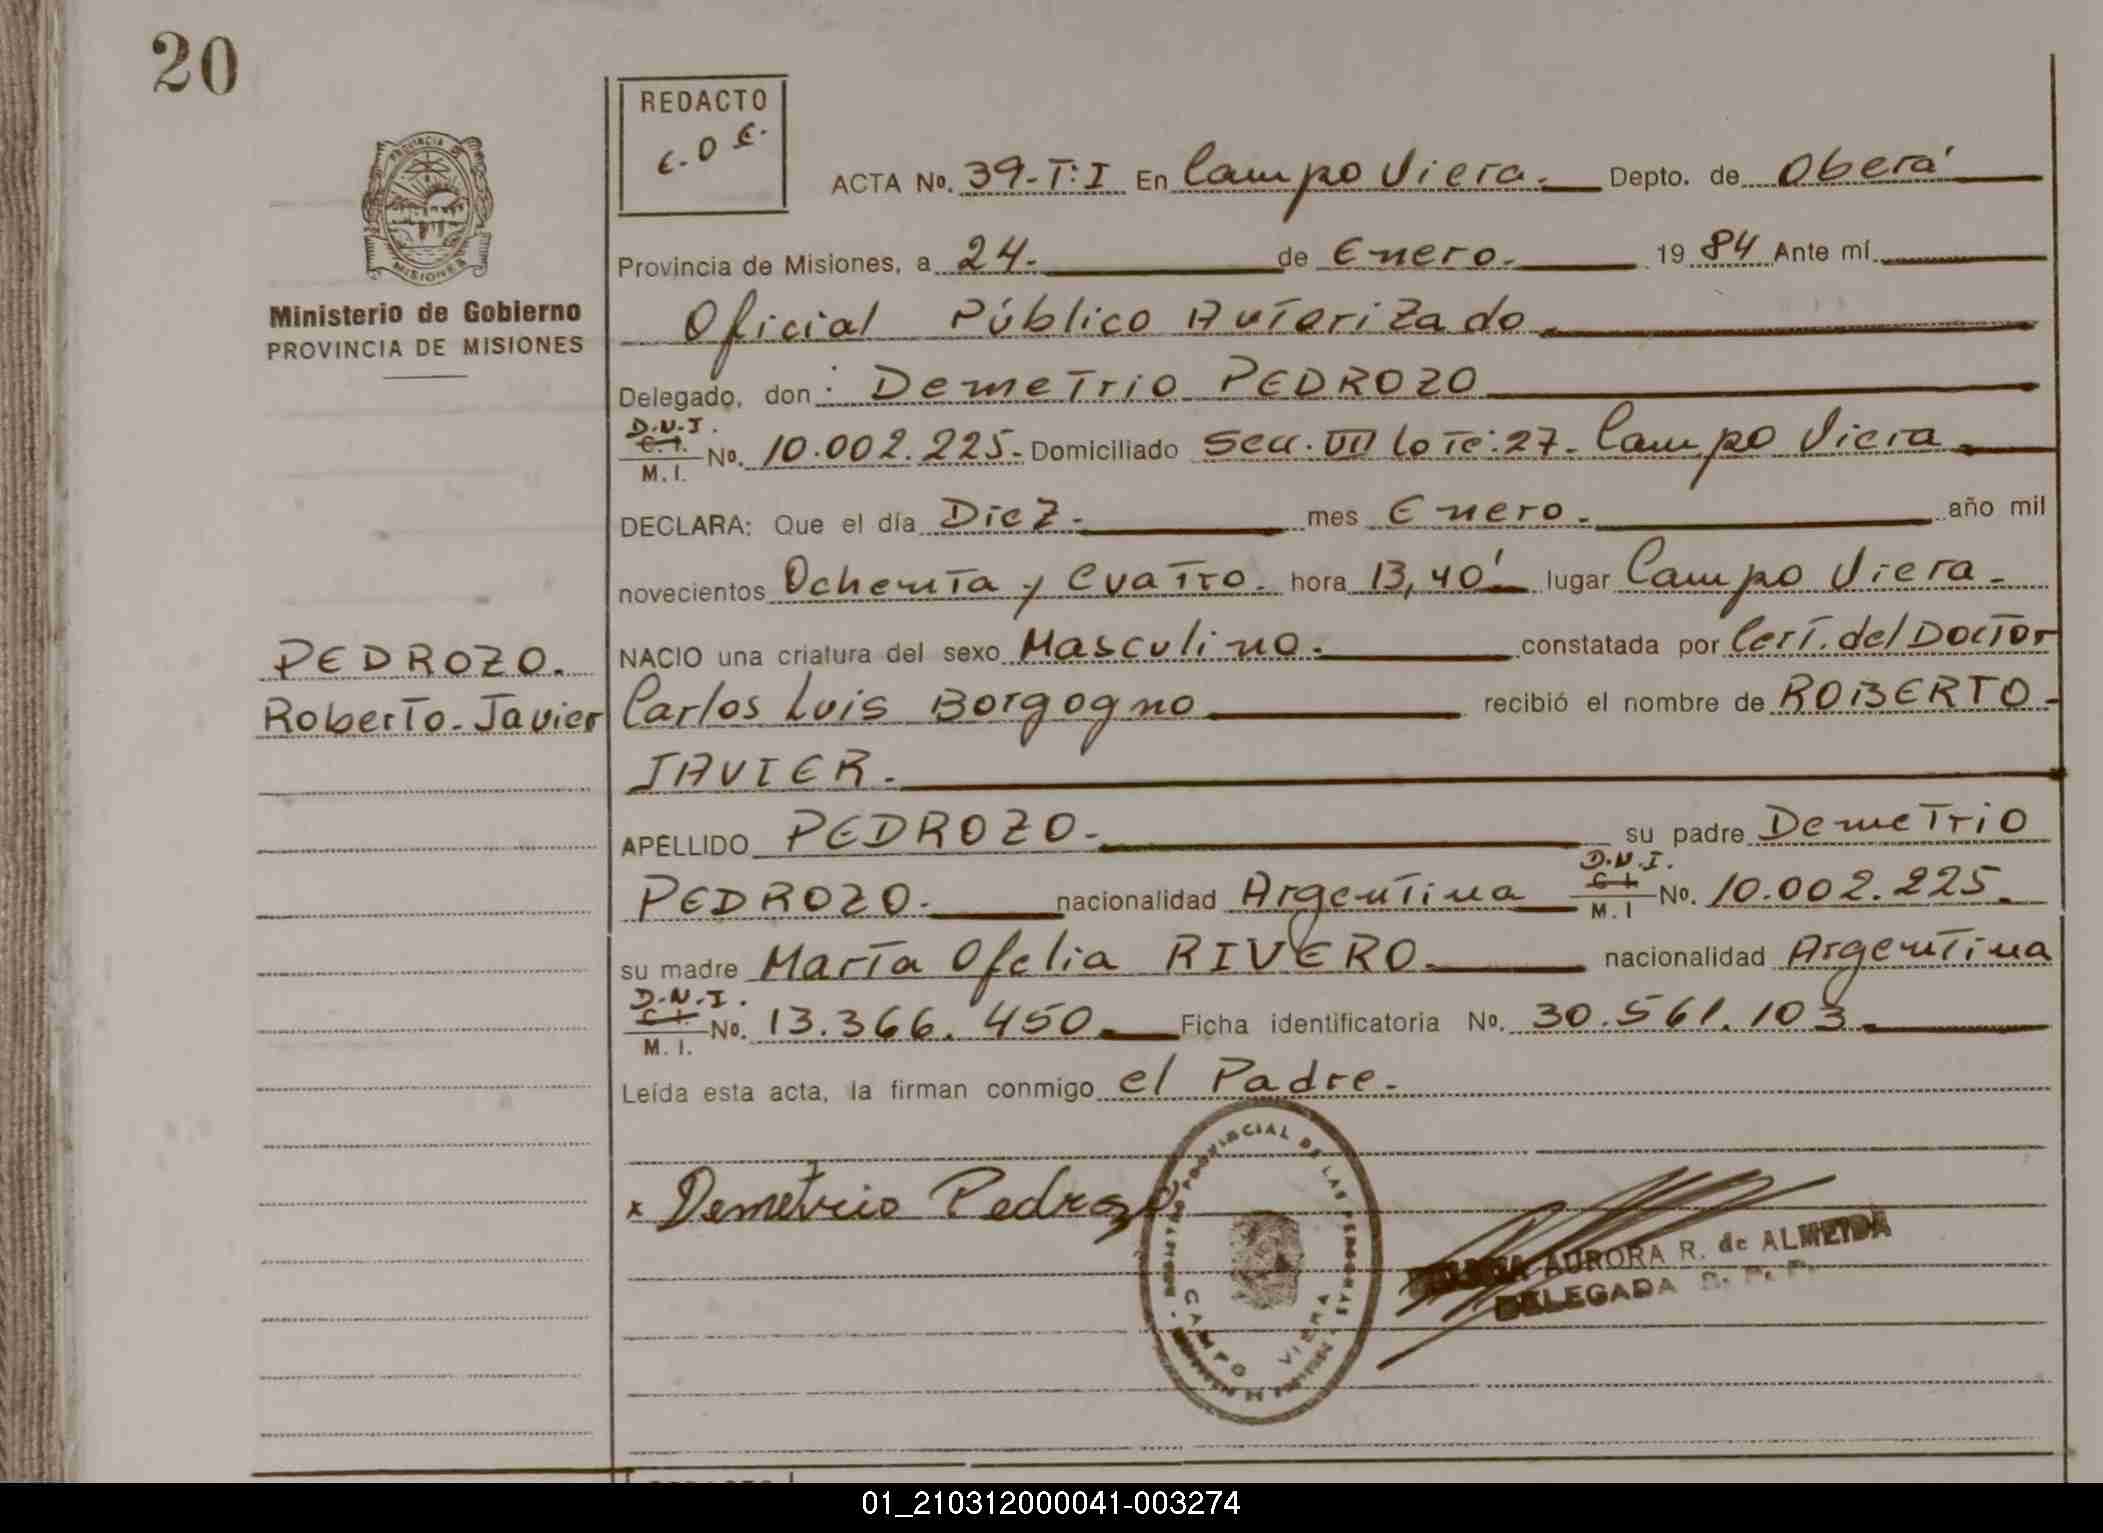 20
REDACTO
E.O.E.
PROVINCIA DE
MISIONES
Ministerio de Gobierno
PROVINCIA DE MISIONES
ACTA No. 39-T:I En Campo Viera. Depto. de Oberá
Provincia de Misiones, a 24. de Enero. 19 84 Ante mí
Oficial Público Autorizado
Delegado, don: Demetrio PEDROZO
D.N.I.
C.I.
M.I. No. 10.002.225. Domiciliado Secc. VII Lote: 27. Campo Viera
DECLARA: Que el día Diez. mes Enero. año mil
novecientos Ochenta y Cuatro. hora 13,40' lugar Campo Viera
NACIO una criatura del sexo Masculino. constatada por Cert. del Doctor
PEDROZO.
Roberto-Javier
Carlos Luis Borgogno recibió el nombre de ROBERTO
JAVIER.
APELLIDO PEDROZO. su padre Demetrio
PEDROZO. nacionalidad Argentina D.N.I. C.I. M.I No. 10.002.225.
su madre María Ofelia RIVERO. nacionalidad Argentina
D.N.I.
C.I.
M.I. No. 13.366.450 Ficha identificatoria No. 30.561.103
Leída esta acta, la firman conmigo el Padre.
x Demetrio Pedrozo
REGISTRO PROVINCIAL DE LAS PERSONAS
CAMPO VIERA
AURORA R. de ALMEIDA
DELEGADA R. P. P.
01_210312000041-003274